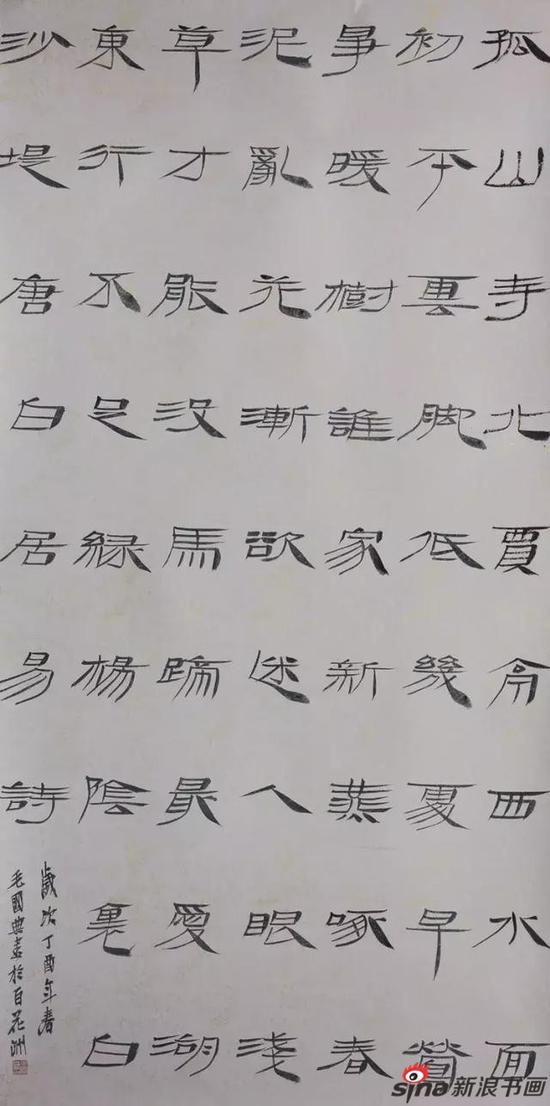 孤山寺北賈亭西水面
初平雲脚低幾處早鶯
爭暖樹誰家新燕啄春
泥亂花漸欲迷人眼淺
草才能沒馬蹄最愛湖
東行不足綠楊陰裏白
沙堤唐白居易詩
歲次丁酉年春
毛國典書於百花洲
sina新浪书画